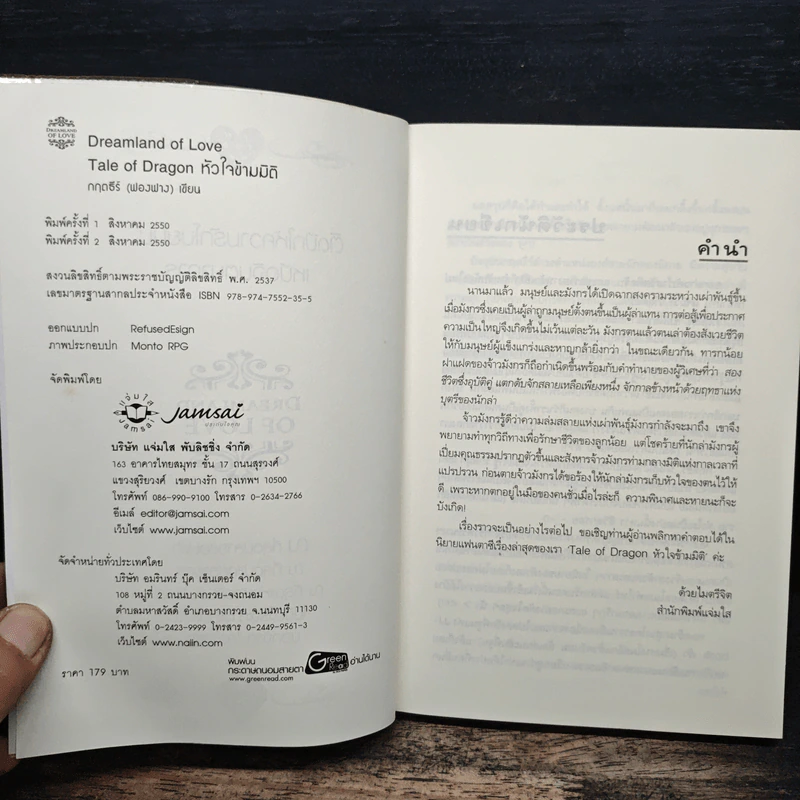 DREAMLAND
OF LOVE
Dreamland of Love
Tale of Dragon หัวใจข้ามมิติ
กฤตธีร์ (ฟองฟาง) เขียน
พิมพ์ครั้งที่ 1 สิงหาคม 2550
พิมพ์ครั้งที่ 2 สิงหาคม 2550
สงวนลิขสิทธิ์ตามพระราชบัญญัติลิขสิทธิ์ พ.ศ. 2537
เลขมาตรฐานสากลประจำหนังสือ ISBN 978-974-7552-35-5
ออกแบบปก RefusedEsign
ภาพประกอบปก Monto RPG
จัดพิมพ์โดย
แจ่มใส
Jamsai
Jamsai
บริษัท แจ่มใส พับลิชชิ่ง จำกัด
163 อาคารไทยสมุทร ชั้น 17 ถนนสุรวงศ์
แขวงสุริยวงศ์ เขตบางรัก กรุงเทพฯ 10500
โทรศัพท์ 086-990-9100 โทรสาร 0-2634-2766
อีเมล์ editor@jamsai.com
เว็บไซต์ www.jamsai.com
จัดจำหน่ายทั่วประเทศโดย
บริษัท อมรินทร์ บุ๊ค เซ็นเตอร์ จำกัด
108 หมู่ที่ 2 ถนนบางกรวย-จงถนอม
ตำบลมหาสวัสดิ์ อำเภอบางกรวย จ.นนทบุรี 11130
โทรศัพท์ 0-2423-9999 โทรสาร 0-2449-9561-3
เว็บไซต์ www.naiin.com
ราคา 179 บาท
พิมพ์บน
กระดาษถนอมสายตา
www.greenread.com
Green
Read
อ่านได้นาน
คำนำ
นานมาแล้ว มนุษย์และมังกรได้เปิดฉากสงครามระหว่างเผ่าพันธุ์ขึ้น
เมื่อมังกรซึ่งเคยเป็นผู้ล่าถูกมนุษย์ตั้งตนขึ้นเป็นผู้ล่าแทน การต่อสู้เพื่อประกาศ
ความเป็นใหญ่จึงเกิดขึ้นไม่เว้นแต่ละวัน มังกรตนแล้วตนเล่าต้องสังเวยชีวิต
ให้กับมนุษย์ผู้แข็งแกร่งและหาญกล้ายิ่งกว่า ในขณะเดียวกัน ทารกน้อย
ฝาแฝดของจ้าวมังกรก็ถือกำเนิดขึ้นพร้อมกับคำทำนายของผู้วิเศษที่ว่า สอง
ชีวิตซึ่งอุบัติคู่ แตกดับจักสลายเหลือเพียงหนึ่ง จักกาลข้างหน้าด้วยฤทธาแห่ง
บุตรีของนักล่า
จ้าวมังกรรู้ดีว่าความล่มสลายแห่งเผ่าพันธุ์มังกรกำลังจะมาถึง เขาจึง
พยายามทำทุกวิถีทางเพื่อรักษาชีวิตของลูกน้อย แต่โชคร้ายที่นักล่ามังกรผู้
เปี่ยมคุณธรรมปรากฏตัวขึ้นและสังหารจ้าวมังกรท่ามกลางมิติแห่งกาลเวลาที่
แปรปรวน ก่อนตายจ้าวมังกรได้ขอร้องให้นักล่ามังกรเก็บหัวใจของตนไว้ให้
ดี เพราะหากตกอยู่ในมือของคนชั่วเมื่อไรล่ะก็ ความพินาศและหายนะก็จะ
บังเกิด!
เรื่องราวจะเป็นอย่างไรต่อไป ขอเชิญท่านผู้อ่านพลิกหาคำตอบได้ใน
นิยายแฟนตาซีเรื่องล่าสุดของเรา 'Tale of Dragon หัวใจข้ามมิติ' ค่ะ
ด้วยไมตรีจิต
สำนักพิมพ์แจ่มใส